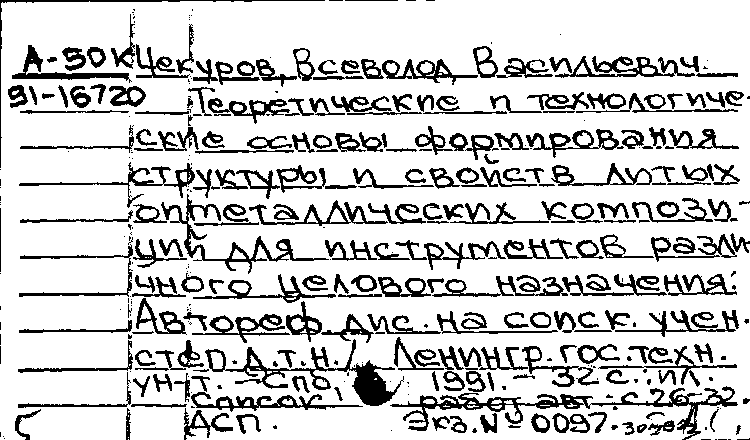 А-50К Чекуров, Всеволод Васильевич.
91-16720 Теоретические и технологиче-
ские основы формирования
структуры и свойств литых
опметаллических компози-
ций для инструментов разли
чного целового назначения:
Автореф. дис. на соиск. учен.
степ. д.т.н./ Ленингр. гос. техн.
ун-т. - Спб, 1991. - 32 с.: ил.
Список работ авт.: с. 26-32.
ДСП. Экз. № 0097.